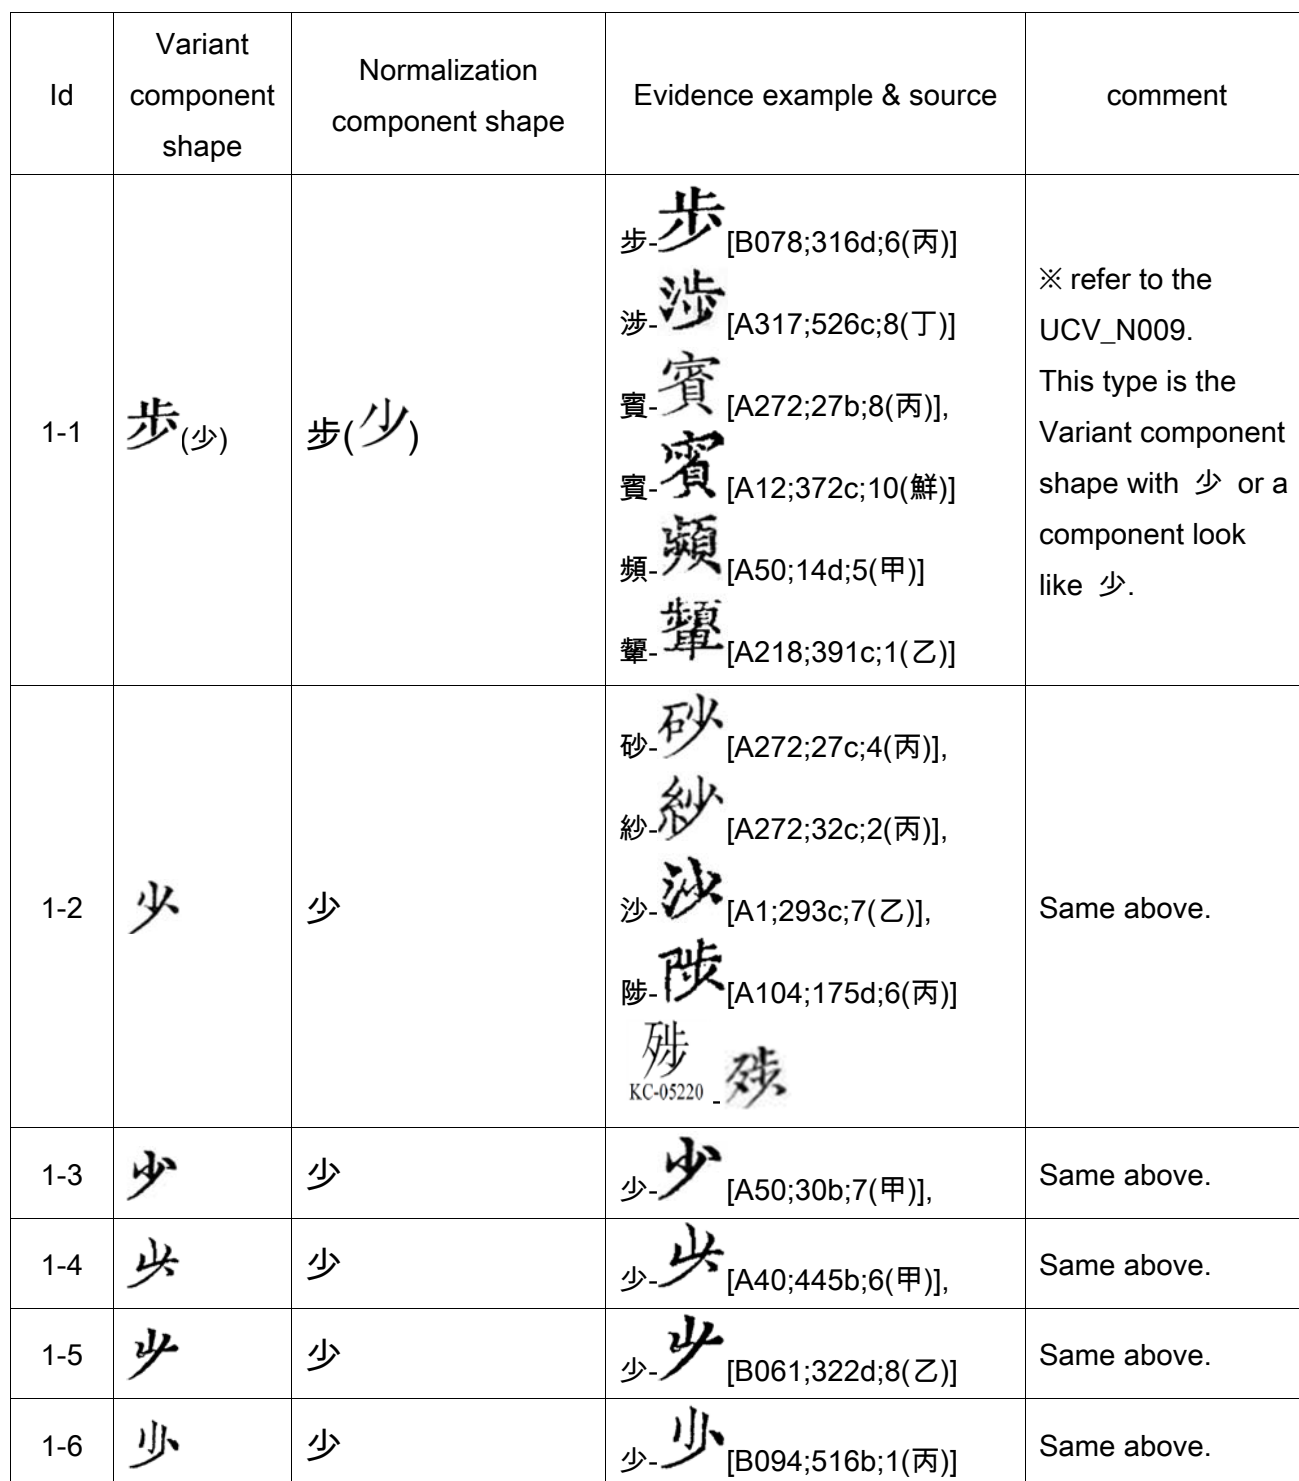 Id
Variant
component
shape
Normalization
component shape
Evidence example & source
comment
1-1
歩(少)
步(少)
步-歩[B078;316d;6(丙)]
涉-渉[A317;526c;8(丁)]
賓-賓[A272;27b;8(丙)],
賓-賔[A12;372c;10(鮮)]
頻-頻[A50;14d;5(甲)]
顰-顰[A218;391c;1(乙)]
※ refer to the
UCV_N009.
This type is the
Variant component
shape with 少 or a
component look
like 少.
1-2
少
少
砂-砂[A272;27c;4(丙)],
紗-紗[A272;32c;2(丙)],
沙-沙[A1;293c;7(乙)],
陟-陟[A104;175d;6(丙)]
KC-05220 -
Same above.
1-3
少
少
少-少[A50;30b;7(甲)],
Same above.
1-4
少
少-[A40;445b;6(甲)],
Same above.
1-5
少
少-[B061;322d;8(乙)]
Same above.
1-6
少
少-[B094;516b;1(丙)]
Same above.